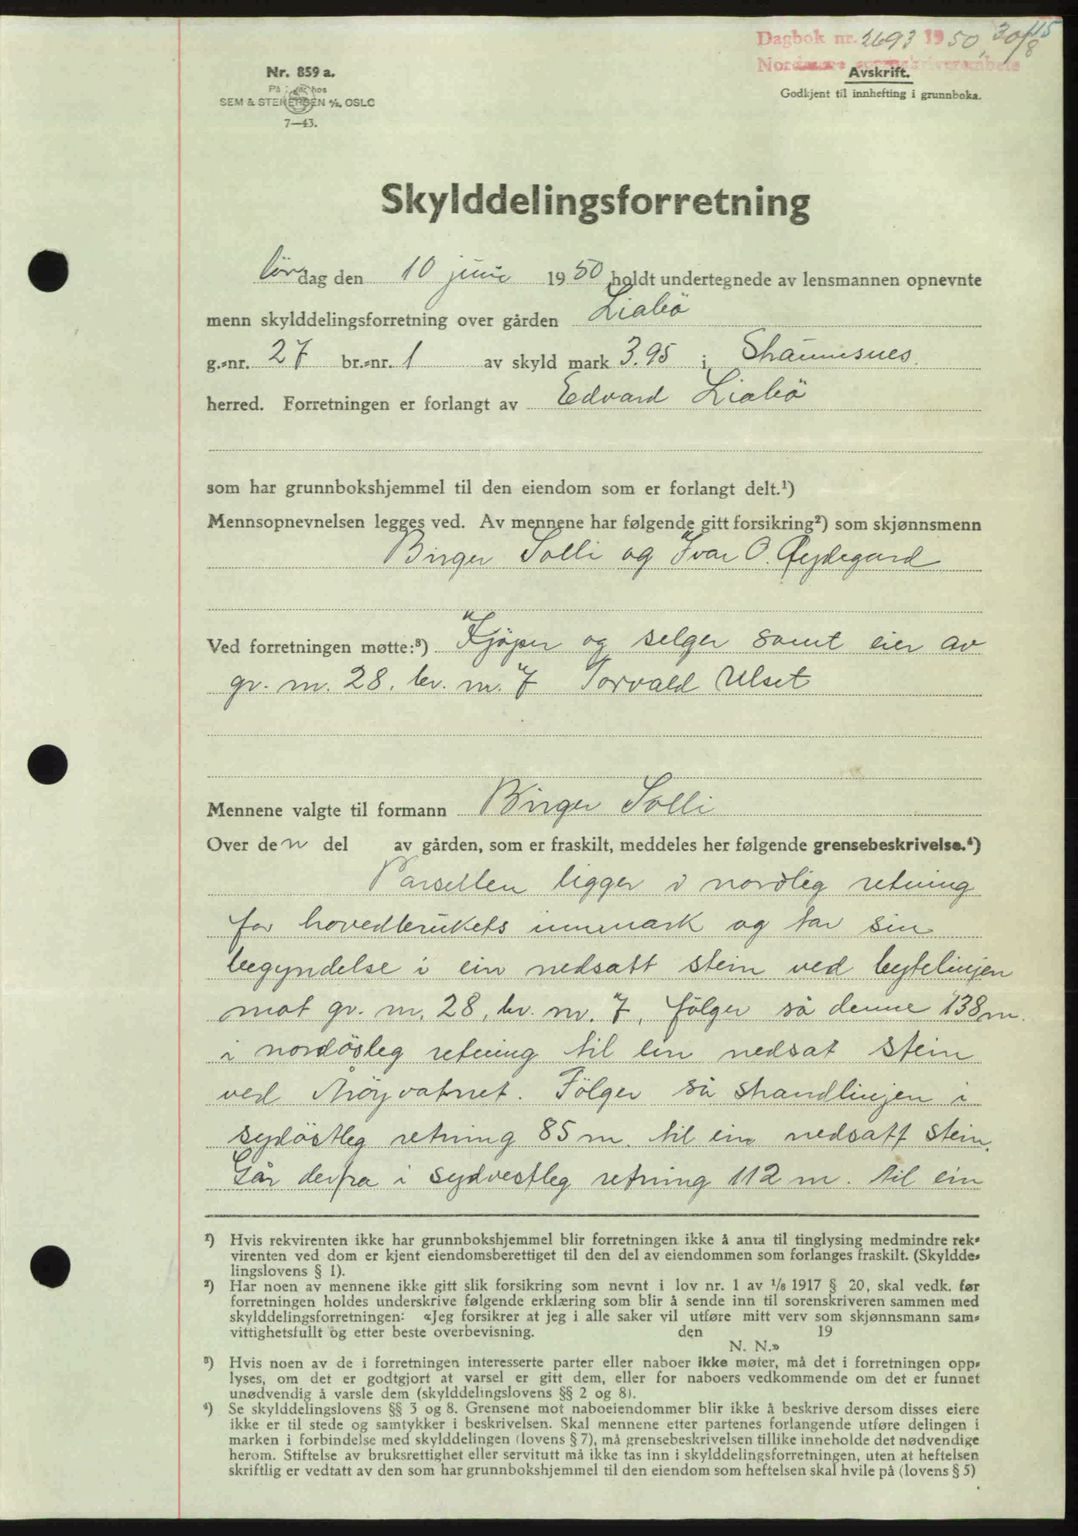 Dagbok nr. 2693 1950, 30/8 115
Nordmøre sorenskriverembete
Nr. 859 a.
Avskrift.
SEM & STENERSEN A/S, OSLO
Godkjent til innhefting i grunnboka.
7—43.
Skylddelingsforretning
Lørdag den 10 juni 1950 holdt undertegnede av lensmannen opnevnte
menn skylddelingsforretning over gården Liabö
g.-nr. 27 br.-nr. 1 av skyld mark 3.95 i Straumsnes.
herred. Forretningen er forlangt av Edvard Liabö
som har grunnbokshjemmel til den eiendom som er forlangt delt.¹)
Mennsopnevnelsen legges ved. Av mennene har følgende gitt forsikring²) som skjønnsmenn
Birger Solli og Ivar O. Øydegard
Ved forretningen møtte:³) Kjöper og selger samt eier av
gr. nr. 28. br. nr. 7 Torvald Ulset
Mennene valgte til formann Birger Solli
Over den del av gården, som er fraskilt, meddeles her følgende grensebeskrivelse.⁴)
Parsellen ligger i nordlig retning
for hovedbrukets innmark og tar sin
begyndelse i ein nedsatt stein ved bytelinjen
mot gr. nr. 28, br. nr. 7, fölger så denne 138 m.
i nordöstleg retning til ein nedsat stein
ved vatnet. Fölger så strandlinjen i
sydöstleg retning 85 m. til ein nedsatt stein.
Går derfra i sydvestleg retning 112 m. til ein
¹) Hvis rekvirenten ikke har grunnbokshjemmel blir forretningen ikke å anta til tinglysing medmindre rek-
virenten ved dom er kjent eiendomsberettiget til den del av eiendommen som forlanges fraskilt. (Skyldde-
lingslovens § 1).
²) Har noen av mennene ikke gitt slik forsikring som nevnt i lov nr. 1 av 1/6 1917 § 20, skal vedk. før
forretningen holdes underskrive følgende erklæring som blir å sende inn til sorenskriveren sammen med
skylddelingsforretningen: «Jeg forsikrer at jeg i alle saker vil utføre mitt verv som skjønnsmann sam-
vittighetsfullt og etter beste overbevisning. den 19
N. N.»
³) Hvis noen av de i forretningen interesserte parter eller naboer ikke møter, må det i forretningen opp-
lyses, om det er godtgjort at varsel er gitt dem, eller for naboers vedkommende om det er funnet
unødvendig å varsle dem (skylddelingslovens §§ 2 og 8).
⁴) Se skylddelingslovens §§ 3 og 8. Grensene mot naboeiendommer blir ikke å beskrive dersom disses eiere
ikke er til stede og samtykker i beskrivelsen. Skal mennene etter partenes forlangende utføre delingen i
marken i forbindelse med skylddelingen (lovens § 7), må grensebeskrivelsen tillike inneholde det nødvendige
herom. Stiftelse av bruksrettighet eller servitutt må ikke tas inn i skylddelingsforretningen, uten at heftelsen
skriftlig er vedtatt av den som har grunnbokshjemmel til den eiendom som heftelsen skal hvile på (lovens § 5)